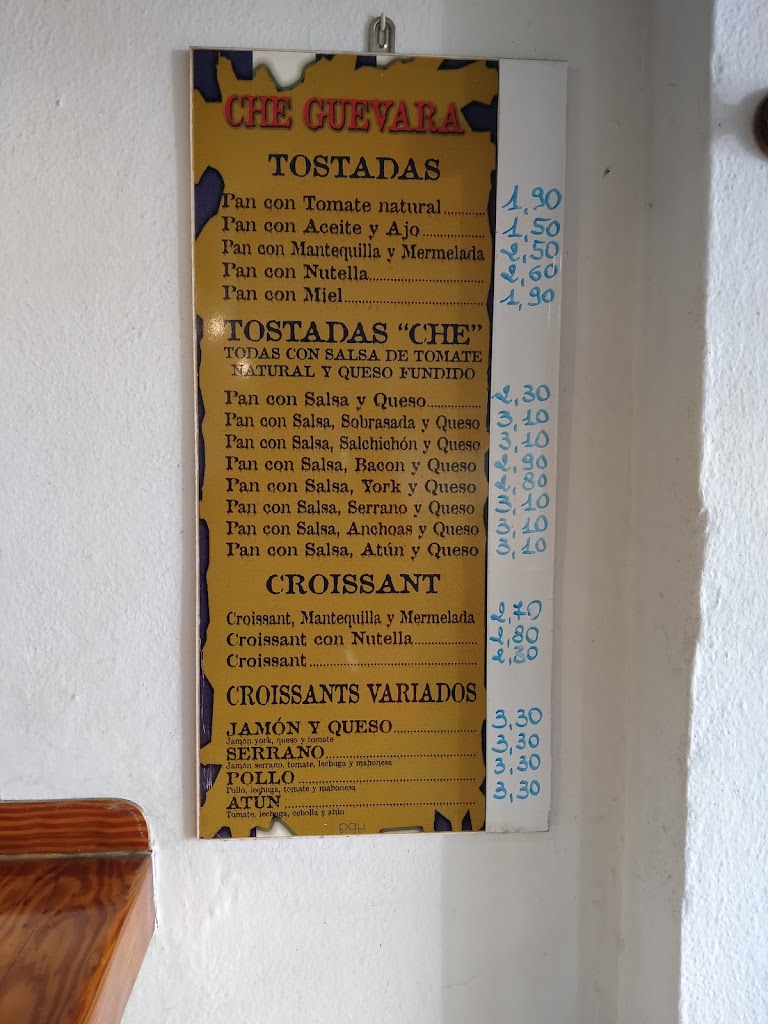 CHE GUEVARA
TOSTADAS
Pan con Tomate natural.......... 1,90
Pan con Aceite y Ajo............... 1,50
Pan con Mantequilla y Mermelada 2,50
Pan con Nutella............................ 2,60
Pan con Miel................................. 1,90
TOSTADAS "CHE"
TODAS CON SALSA DE TOMATE
NATURAL Y QUESO FUNDIDO
Pan con Salsa y Queso............. 2,30
Pan con Salsa, Sobrasada y Queso 3,10
Pan con Salsa, Salchichón y Queso 3,10
Pan con Salsa, Bacon y Queso 2,90
Pan con Salsa, York y Queso 2,80
Pan con Salsa, Serrano y Queso 3,10
Pan con Salsa, Anchoas y Queso 3,10
Pan con Salsa, Atún y Queso 3,10
CROISSANT
Croissant, Mantequilla y Mermelada 2,70
Croissant con Nutella............... 2,80
Croissant.........................................
CROISSANTS VARIADOS
JAMÓN Y QUESO.................... 3,30
Jamón york, queso y tomate
SERRANO..................................... 3,30
Jamón serrano, tomate, lechuga y mahonesa
POLLO........................................... 3,30
Pollo, lechuga, tomate y mahonesa
ATÚN.............................................. 3,30
Tomate, lechuga, cebolla y atún
pau